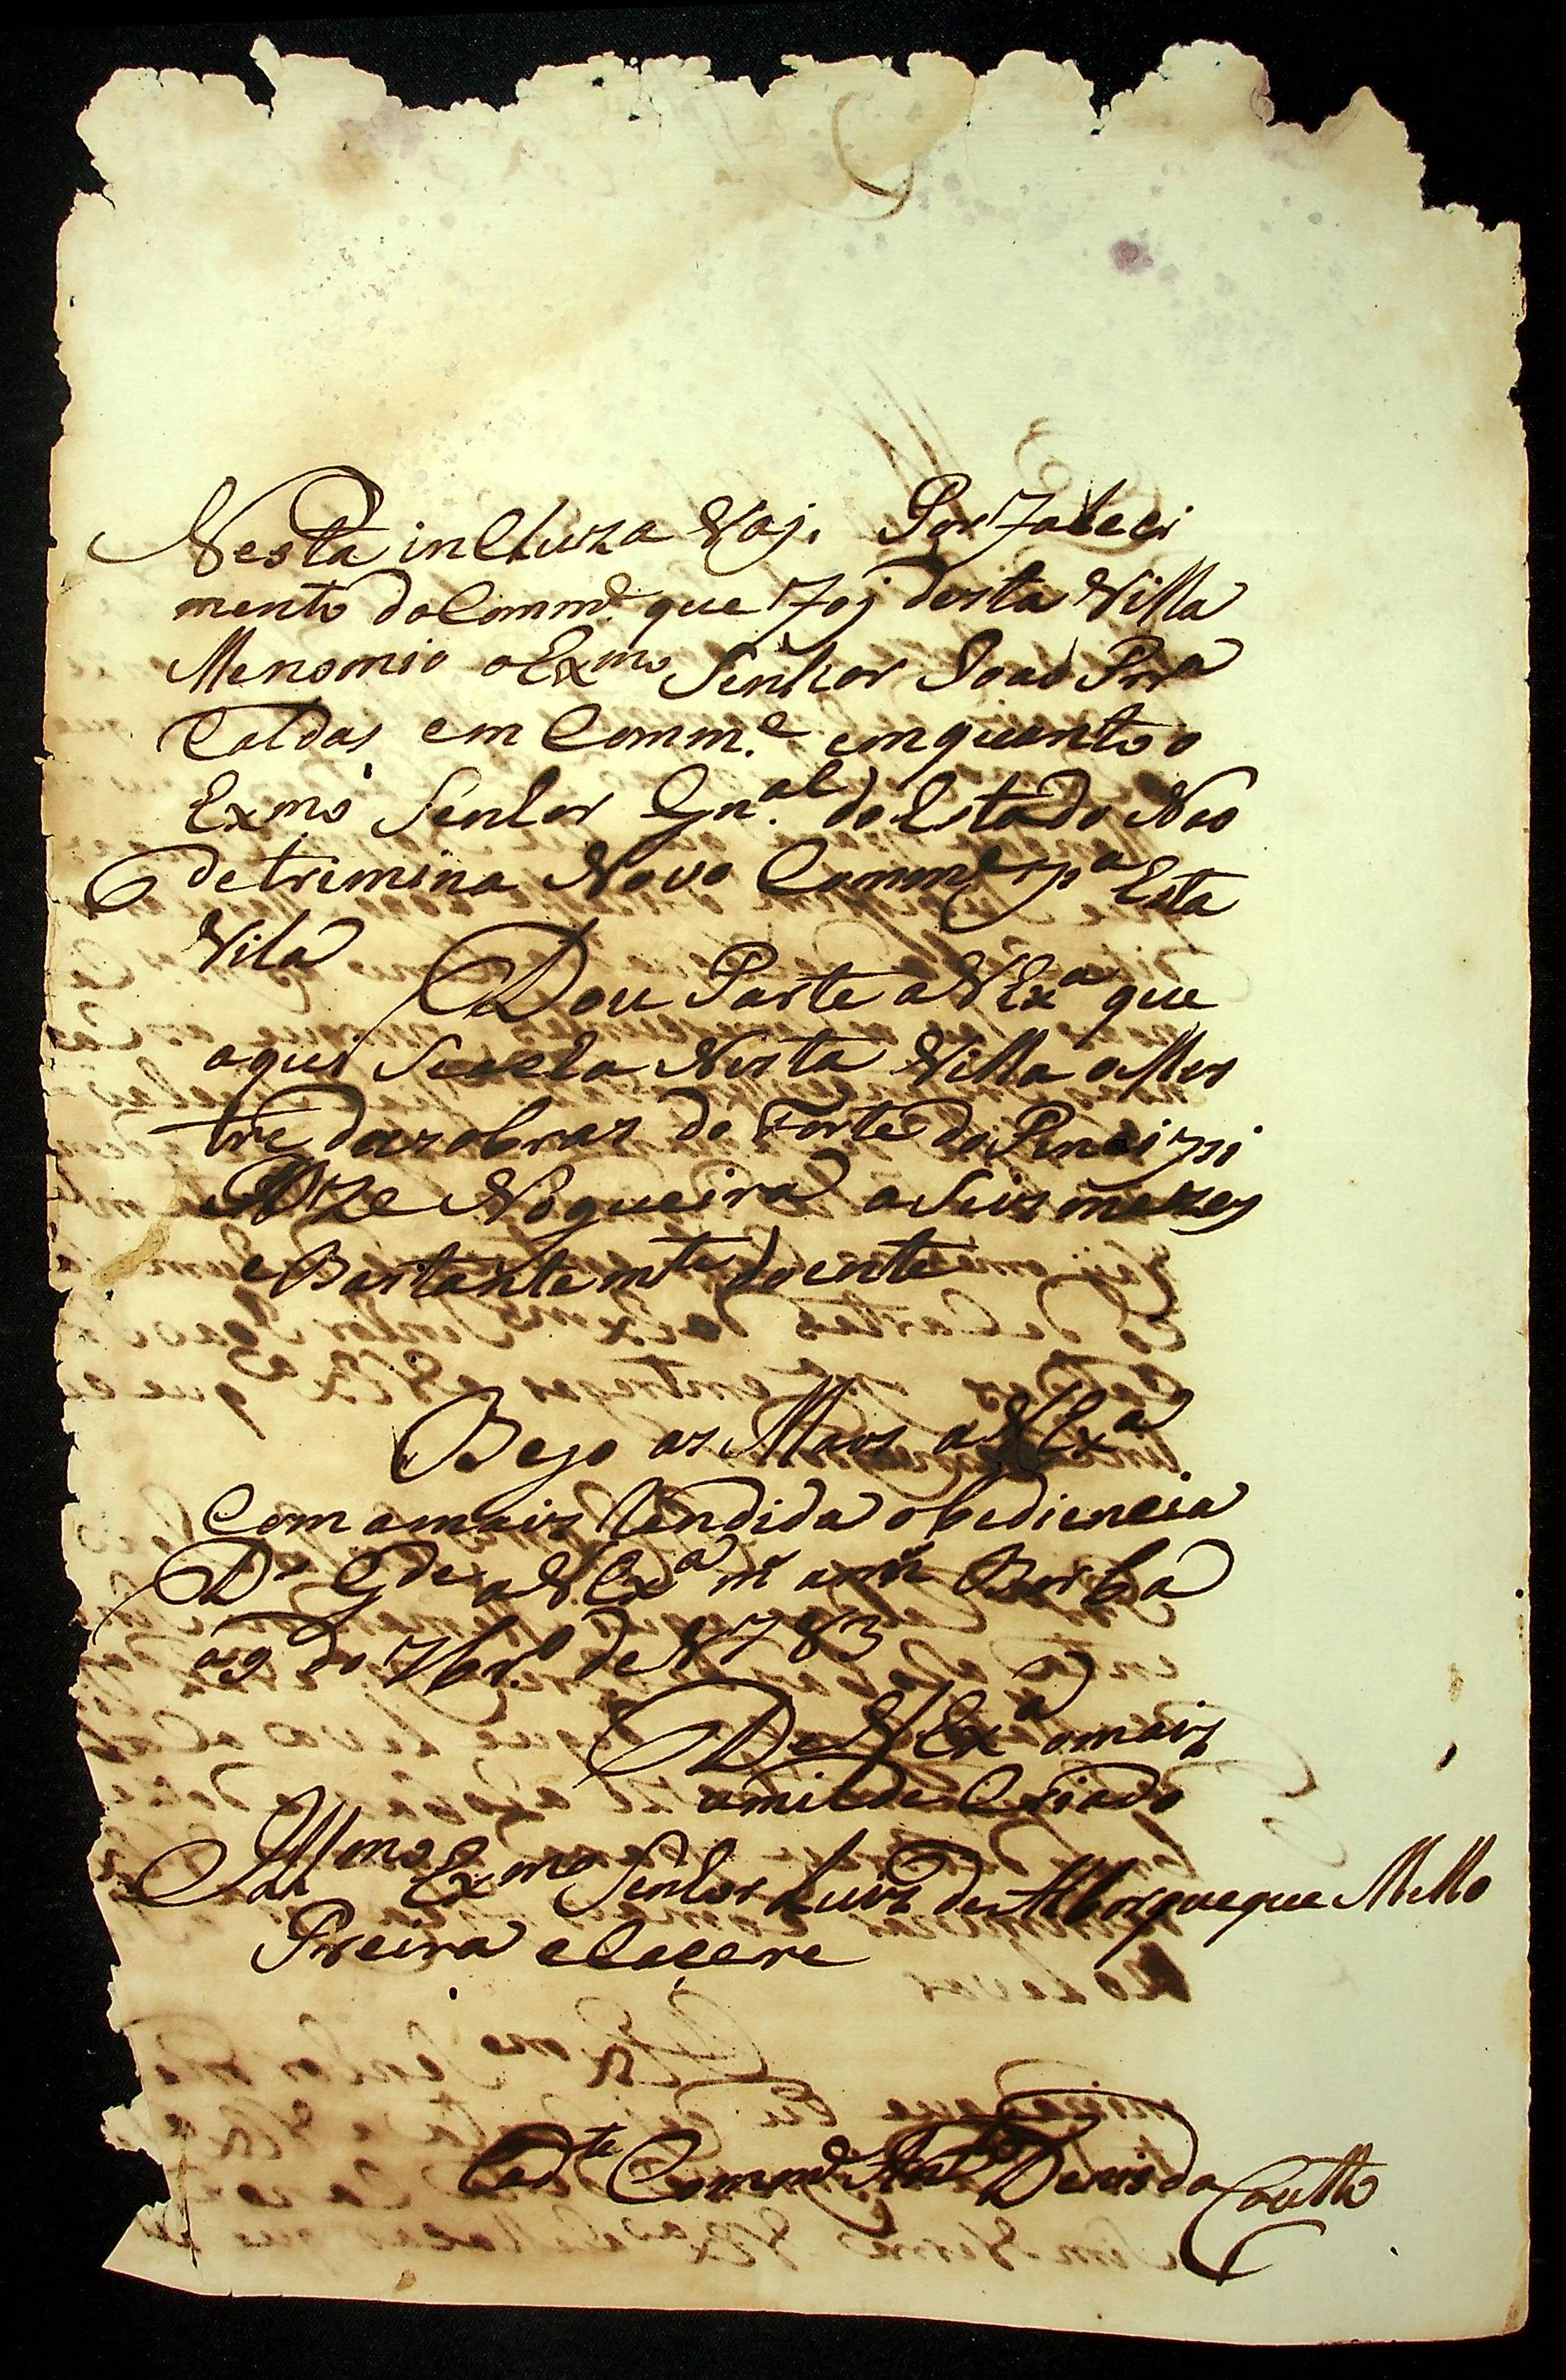 Nesta incluza Vaj. Por Faleci
mento do Comm.e que Foj desta Villa
Menomio o Exmo Senhor Joao Prra
Caldas em Comm.e emquanto o
Exmo Senhor Gn.al do Estado Nao
detrimina Novo Comme pa Esta
Vila
Dou Parte a VExa que
aqui Se acha Nesta Villa o Mes
tre das obras do Forte do Principi
Joze Nogueira a Seis mezes
e Bastante mte doente
Bejo as Maos a VExa
Com a mais Rendida obediencia
Ds Gde a VExa ms ans Borba
a 9 do 7br.o de 1783
De VExa o mais
umilde Criado
Illmo Exmo Senhor Luis de Alborqueque Mello
Preira e Cacere
Cadte Commde Anto Denis do Coutto